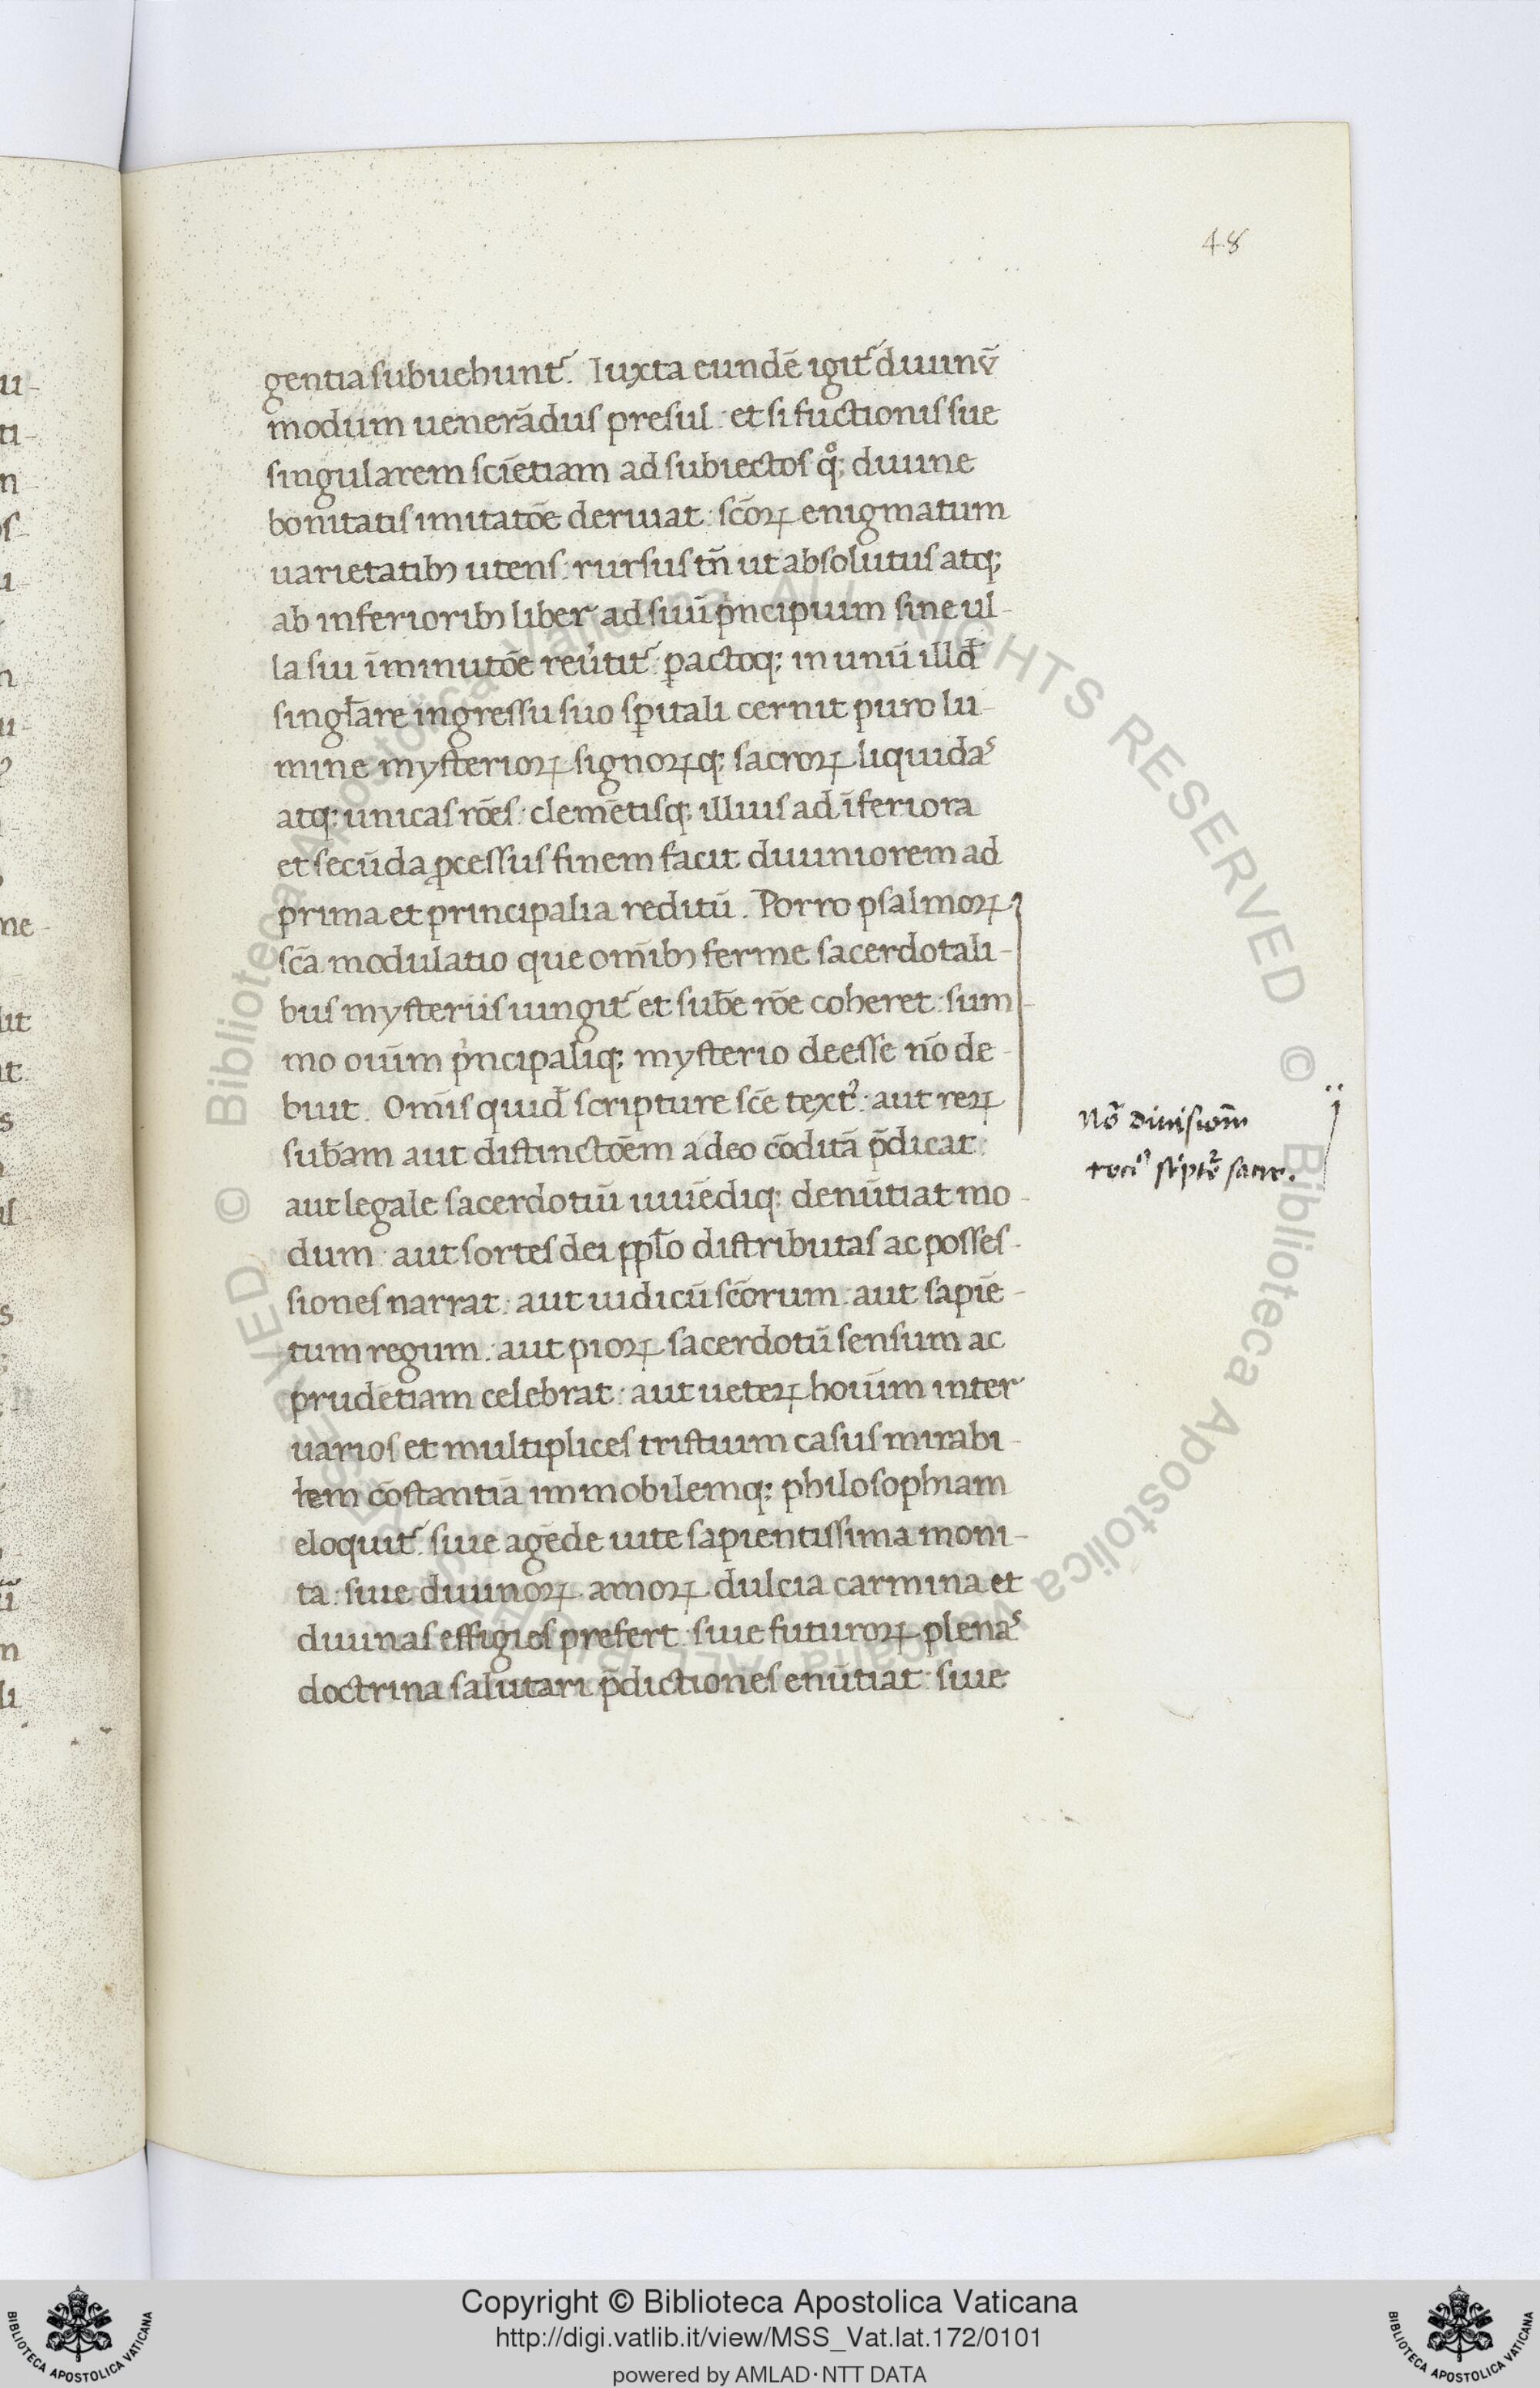 48
gentia subuehunt᷑. Iuxta eundē igit᷑ diuinū
modum uenerādus presul: et si fūctionis sue
singularem sciētiam ad subiectos qͦꝫ diuine
bonitatis imitatōe deriuat: scōꝝ enigmatum
uarietatibꝫ utens: rursus tn̄ ut absolutus atqꝫ
ab inferioribꝫ liber ad suū pͥncipium sine ul-
la sui īminutōe reu̓tit᷑: ꝑactoqꝫ in unū illđ
singl̄are ingressu suo sp̄itali cernit puro lu-
mine mysterioꝝ signoꝝqꝫ sacroꝝ liquidas
atqꝫ unicas rōes: clemētisqꝫ illius ad īferiora
et secūda ꝓcessus finem facit diuiniorem ad
prima et principalia reditū. Porro psalmoꝝ
scā modulatio que om̄ibꝫ ferme sacerdotali-
bus mysteriis iungit᷑ et sub̄e rōe coheret: sum-
mo oīum pͥncipaliqꝫ mysterio deesse nō de-
buit. Om̄is quiđ scripture scē text᷒: aut reꝝ
sub̄am aut distinctōem adeo cōditā p̄dicat:
aut legale sacerdotiū uiuēdiqꝫ denūtiat mo-
dum: aut sortes dei ppl̄o distributas ac posses-
siones narrat: aut iudicū scōrum: aut sapiē-
tum regum: aut pioꝝ sacerdotū sensum ac
prudētiam celebrat: aut ueteꝝ hoīum inter
uarios et multiplices tristium casus mirabi-
lem cōstantiā immobilemqꝫ philosophiam
eloquit᷑: siue agēde uite sapientissima moni-
ta: siue diuinoꝝ amoꝝ dulcia carmina et
diuinas effigies prefert: siue futuroꝝ plenas
doctrina salutari p̄dictiones enūtiat: siue
Copyright © Biblioteca Apostolica Vaticana
http://digi.vatlib.it/view/MSS_Vat.lat.172/0101
powered by AMLAD·NTT DATA